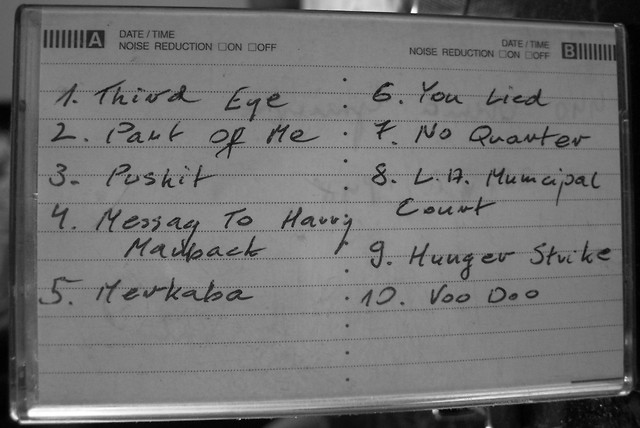 A DATE / TIME
NOISE REDUCTION □ON □OFF
DATE / TIME B
NOISE REDUCTION □ON □OFF
1. Third Eye
2. Part of Me
3. Pushit
4. Messag To Harry
Manback
5. Merkaba
6. You Lied
7. No Quarter
8. L.A. Muncipal
Court
9. Hunger Strike
10. Voo Doo